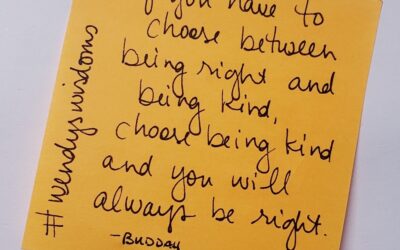 If you have to
choose between
being right and
being kind,
choose being kind
and you will
always be right.
-BUDDAH
#wendyswisdoms